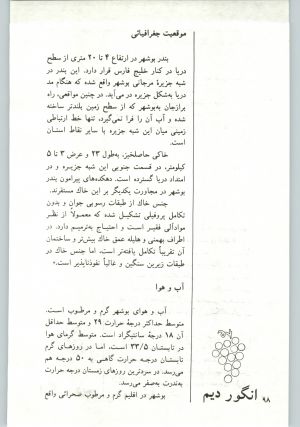 موقعیت جغرافیائی
بندر بوشهر در ارتفاع ۴ تا ۲۰ متری از سطح
دریا در کنار خلیج فارس قرار دارد. این بندر در
شبه جزیرهٔ مرجانی بوشهر واقع شده که هنگام مد
دریا به‌شکل جزیره در می‌آید. در چنین مواقعی، راه
برازجان به‌بوشهر که از سطح زمین بلندتر ساخته
شده و آب آن را فرا نمی‌گیرد، تنها خط ارتباطی
زمینی میان این شبه جزیره با سایر نقاط استان
است.
خاکی حاصلخیز، به‌طول ۲۳ و عرض ۳ تا ۵
کیلومتر، در قسمت جنوبی این شبه جزیره و در
امتداد دریا گسترده است. دهکده‌های پیرامون بندر
بوشهر در مجاورت یکدیگر بر این خاک مستقرند.
جنس خاك از طبقات رسوبی جوان و بدون
تکامل پروفیلی تشکیل شده که معمولاً از نظر
موادآلی فقیر است و احتیاج به‌ترمیم دارد. در
اطراف بهمنی و هلیله عمق خاك بیش‌تر و ساختمان
آن تقریباً تکامل یافته‌تر است، اما جنس خاك در
طبقات زیرین سنگین و غالباً نفوذناپذیر است.»
آب و هوا
آب و هوای بوشهر گرم و مرطوب است.
متوسط حداکثر درجهٔ حرارت ۲۹ و متوسط حداقل
آن ۱۸ درجهٔ سانتیگراد است. متوسط گرمای هوا
در تابستان ۳۳/۵ است، اما در روزهای گرم
تابستان درجهٔ حرارت گاهی به ۵۰ درجه هم
می‌رسد. در سردترین روزهای زمستان درجه حرارت
به‌ندرت به‌صفر می‌رسد.
بوشهر در اقلیم گرم و مرطوب صحرائی واقع
۹۸ انگور دیم